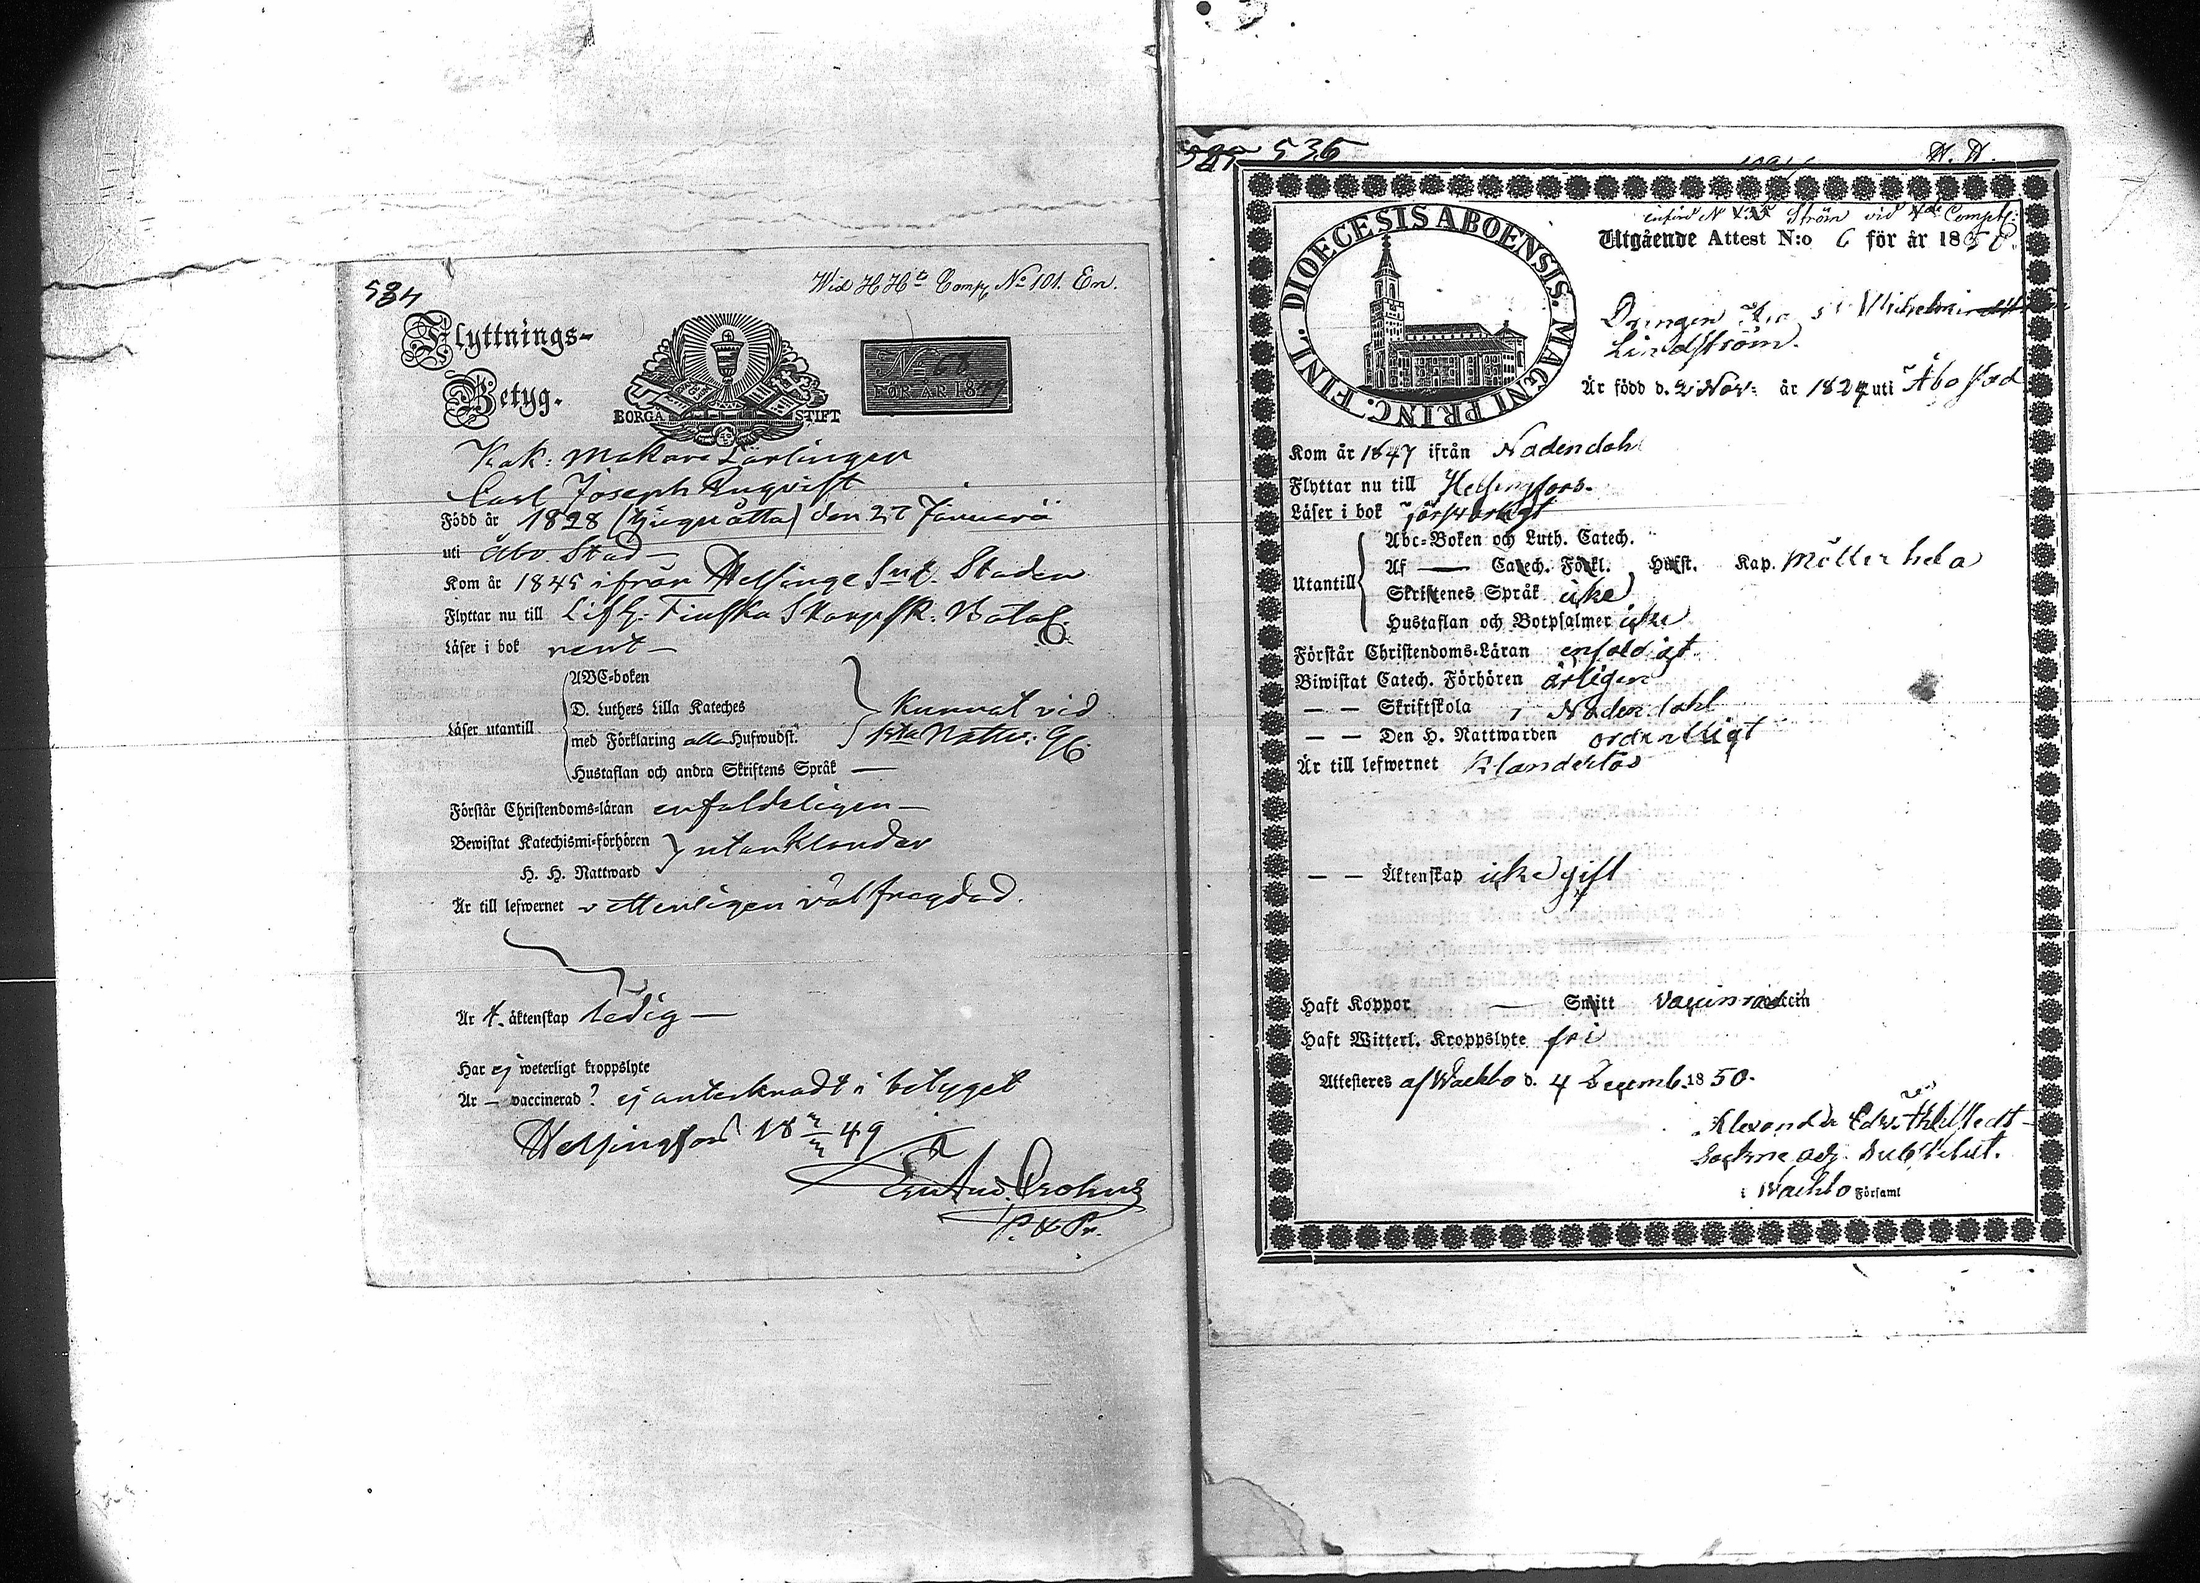 534
Wid H Hts Comp. No 101. En.
Flyttnings-
Betyg.
BORGÅ STIFT
No 68
FÖR ÅR 1849
Kak: Makare Lärlingen
Carl Joseph Enqvist
Född år 1828 (tjuguåtta) den 27 Januari
uti Åbo Stad —
Kom år 1845 ifrån Helsinge Staden
Flyttar nu till Lifg. Finska Skarpsk. Batal.
Läser i bok rent —
Läser utantill
ABC-boken
D. Luthers Lilla Kateches
med Förklaring alla Hufwudst.
Hustaflan och andra Skriftens Språk —
Kunnat vid
1sta Nattv: Gg.
Förstår Christendoms-läran enfaldeligen —
Bewistat Katechismi-förhören
H. H. Nattward
utan Klander
Är till lefwernet vetterligen välfrägdad.
Är t. äktenskap ledig —
Har ej weterligt kroppslyte
Är — vaccinerad? ej anteknadt i betyget
Helsingfors 18 49
P. & Pr.
535 536
Utgående Attest N:o 6 för år 1850.
DIOECESIS ABOENSIS. MAGNI PRINC. FINL.
Drengen Vilhelm
Lindström.
Är född d. 2 Nov: år 1824 uti Åbo stad
Kom år 1847 ifrån Nådendahl
Flyttar nu till Helsingfors.
Läser i bok försvarligt
Utantill
Abc-Boken och Luth. Catech.
Af — Catech. Förkl. Hufst. Kap. Möller hela
Skriftenes Språk icke
Hustaflan och Botpsalmer icke
Förstår Christendoms-Läran enfaldigt
Biwistat Catech. Förhören årligen
— — Skriftskola i Nådendahl
— — Den H. Nattwarden ordentligt
Är till lefwernet Klanderlös
— — Äktenskap icke gift
Haft Koppor — Smitt Vaccinerad
Haft Witterl. Kroppslyte fri
Attesteres af Wachto d. 4 Decemb. 1850.
Sockne adj. Substitut.
i Wachto Församl